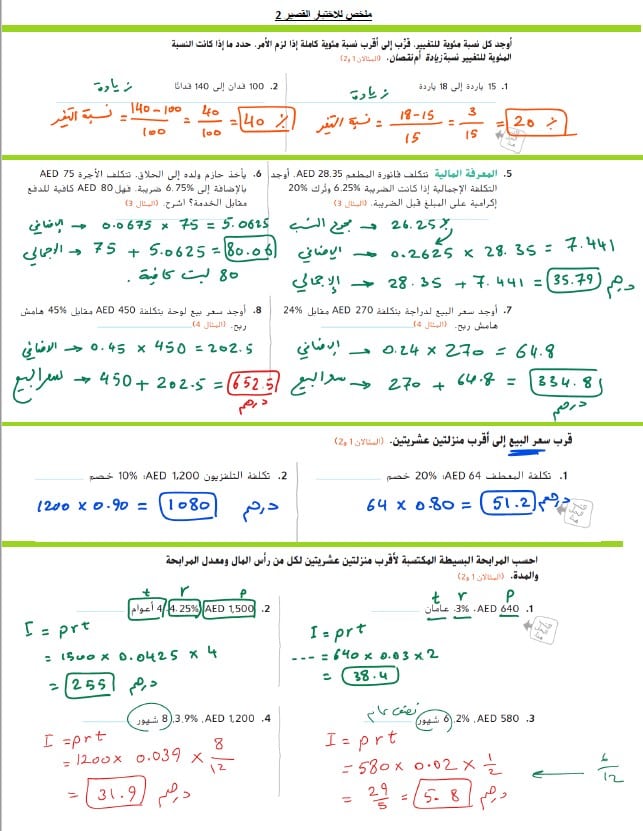 ملخص للاختبار القصير 2
أوجد كل نسبة مئوية للتغيير. قرّب إلى أقرب نسبة مئوية كاملة إذا لزم الأمر. حدد ما إذا كانت النسبة
المئوية للتغيير نسبة زيادة أم نقصان. (المثالان 1 و2)
1. 15 ياردة إلى 18 ياردة
زيادة
نسبة التغير = 18-15 / 15 = 3 / 15 = 20 %
2. 100 فدان إلى 140 فدانًا
زيادة
نسبة التغير = 140-100 / 100 = 40 / 100 = 40 %
5. المعرفة المالية تتكلف فاتورة المطعم AED 28.35. أوجد
التكلفة الإجمالية إذا كانت الضريبة 6.25% وتُرك 20%
إكرامية على المبلغ قبل الضريبة. (المثال 3)
26.25% → مجموع النسب
الإضافي → 0.2625 × 28.35 = 7.441
الإجمالي → 28.35 + 7.441 = 35.79 درهم
6. يأخذ حازم ولده إلى الحلاق. تتكلف الأجرة AED 75
بالإضافة إلى 6.75% ضريبة. فهل AED 80 كافية للدفع
مقابل الخدمة؟ اشرح. (المثال 3)
الإضافي → 0.0675 × 75 = 5.0625
الإجمالي → 75 + 5.0625 = 80.06
80 ليست كافية.
7. أوجد سعر البيع لدراجة بتكلفة AED 270 مقابل 24%
هامش ربح. (المثال 4)
الإضافي → 0.24 × 270 = 64.8
سعر البيع → 270 + 64.8 = 334.8
درهم
8. أوجد سعر بيع لوحة بتكلفة AED 450 مقابل 45% هامش
ربح. (المثال 4)
الإضافي → 0.45 × 450 = 202.5
سعر البيع → 450 + 202.5 = 652.5
درهم
قرب سعر البيع إلى أقرب منزلتين عشريتين. (المثالان 1 و2)
1. تكلفة المعطف AED 64؛ 20% خصم
64 × 0.80 = 51.2 درهم
2. تكلفة التلفزيون AED 1,200؛ 10% خصم
1200 × 0.90 = 1080 درهم
احسب المرابحة البسيطة المكتسبة لأقرب منزلتين عشريتين لكل من رأس المال ومعدل المرابحة
والمدة. (المثالان 1 و2)
t r p
1. AED 640، 3%، عامان
I = prt
--- = 640 × 0.03 × 2
= 38.4
t r p
2. AED 1,500، 4.25%، 4 أعوام
I = prt
= 1500 × 0.0425 × 4
= 255 درهم
نصف عام
3. AED 580، 2%، 6 شهور
I = prt
= 580 × 0.02 × 1/2
6/12
= 29/5 = 5.8 درهم
4. AED 1,200، 3.9%، 8 شهور
I = prt
= 1200 × 0.039 × 8/12
= 31.9 درهم